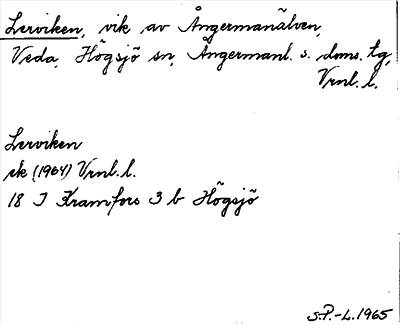 Lerviken, vik av Ångermanälven,
Veda, Högsjö sn, Ångermanl. s. doms. tg,
Vrnl. l.
Lerviken
ek (1964) Vrnl. l.
18 J Kramfors 3 b Högsjö
S.P.-L. 1965